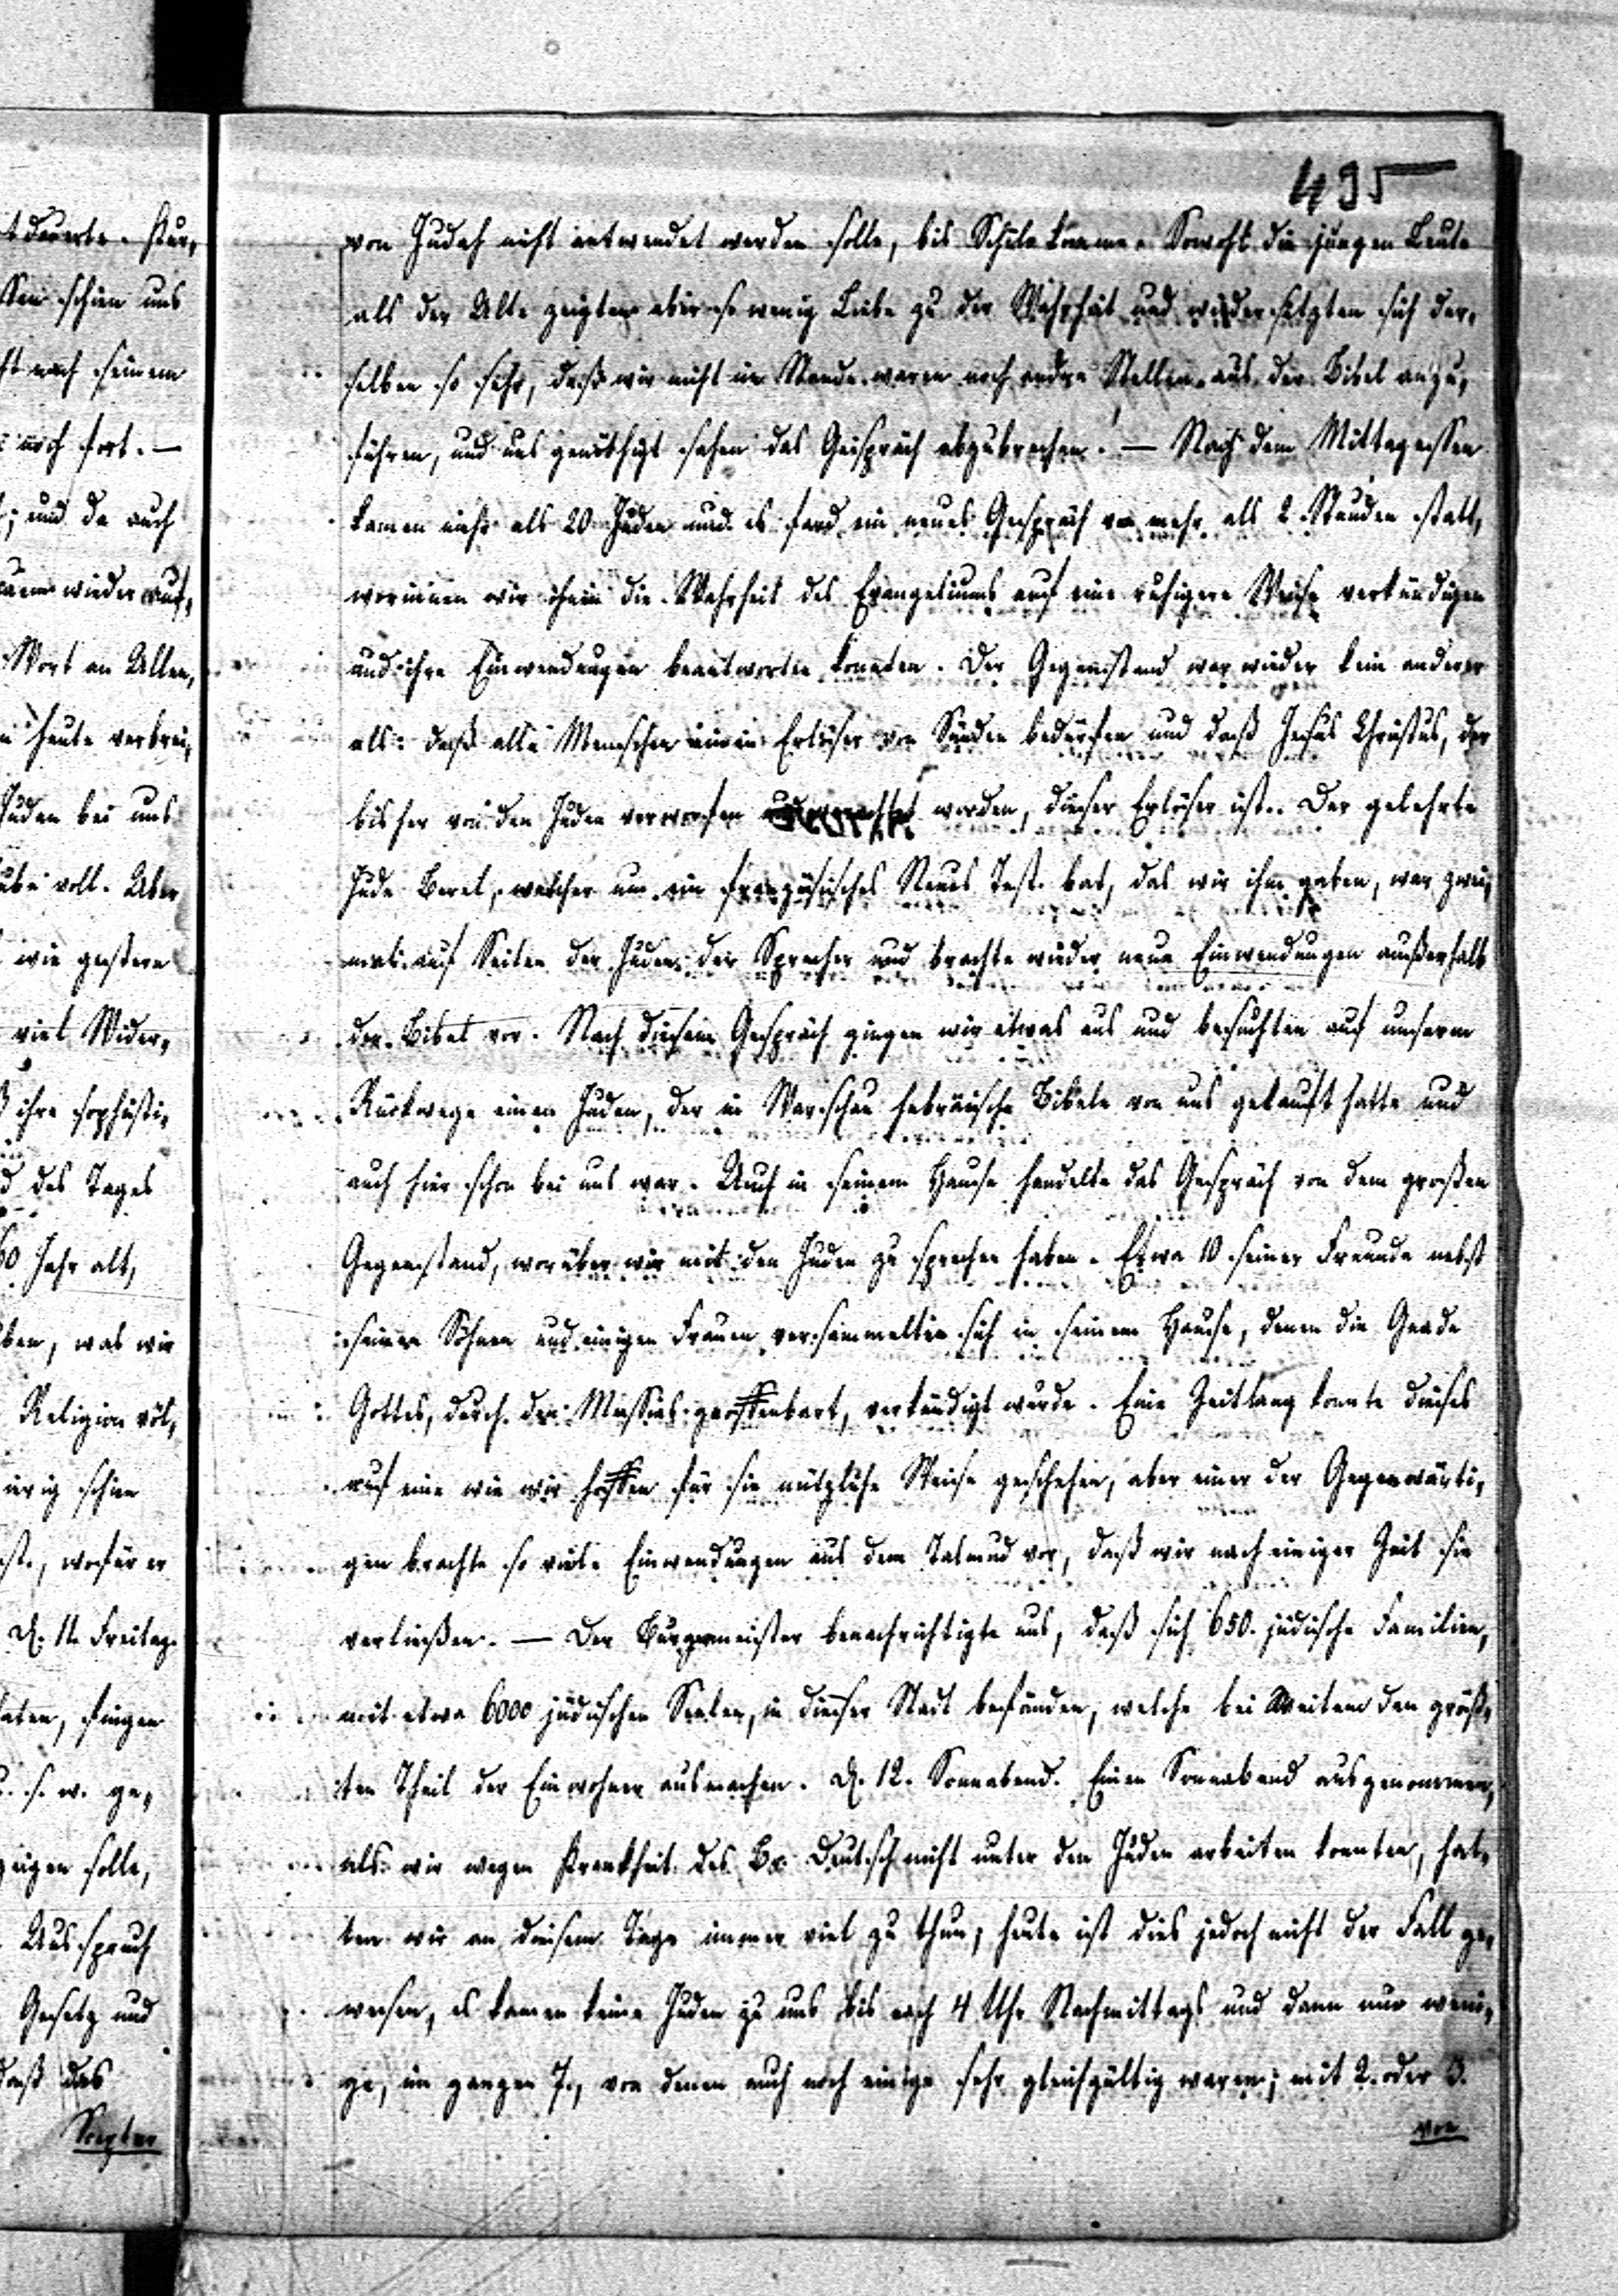 495
von Judah nicht entwendet werden solle, bis Schilo komme. Sowohl die jungen Leute
als der Alte zeigten aber so wenig Liebe zu der Wahrheit und widersetzten sich der-
selben so sehr, daß wir nicht im Stande waren noch andre Stellen aus der Bibel anzu-
führen, und uns genöthigt sahen das Gespräch abzubrechen. — Nach dem Mittagessen
kamen mehr als 20 Juden und es fand ein neues Gespräch von mehr als 2 Stunden statt,
worinnen wir ihnen die Wahrheit des Evangeliums auf eine ruhigere Weise verkündigen
und ihre Einwendungen beantworten konnten. Der Gegenstand war wieder kein anderer
als: daß alle Menschen einen Erlöser von Sünden bedürfen und daß Jesus Christus, der
bisher von den Juden verworfen worden, dieser Erlöser ist. Der gelehrte
Jude Beret, welcher um ein französisches Neues Test. bat, das wir ihm gaben, war zwei-
mal auf Seiten der Juden der Sprecher und brachte wieder neue Einwendungen außerhalb
der Bibel vor. Nach diesem Gespräch gingen wir etwas aus und besuchten auf unserm
Rückwege einen Juden, der in Warschau hebräische Bibeln von uns gekauft hatte und
auch hier schon bei uns war. Auch in seinem Hause handelte das Gespräch von dem großen
Gegenstand, worüber wir mit den Juden zu sprechen haben. Etwa 10 seiner Freunde nebst
seinen Söhnen und einigen Frauen versammelten sich in seinem Hause, denen die Gnade
Gottes, durch den Messias geoffenbart, verkündigt wurde. Eine Zeitlang konnte dieses
auf eine wie wir hoffen für sie nützliche Weise geschehen, aber einer der Gegenwärti-
gen brachte so viele Einwendungen aus dem Talmud vor, daß wir nach einiger Zeit sie
verließen. — Der Burgermeister benachrichtigte uns, daß sich 650 jüdische Familien,
mit etwa 6000 jüdischen Seelen, in dieser Stadt befänden, welche bei Weitem den größ-
ten Theil der Einwohner ausmachen. D. 12. Sonnabend. Einen Sonnabend ausgenommen,
als wir wegen Krankheit des Br. Deutsch nicht unter den Juden arbeiten konnten, hat-
ten wir an diesem Tage immer viel zu thun; heute ist dies jedoch nicht der Fall ge-
wesen, es kamen keine Juden zu uns bis nach 4 Uhr Nachmittags und dann nur weni-
ge, im ganzen 7, von denen auch noch einige sehr gleichgültig waren; mit 2 oder 3.
von